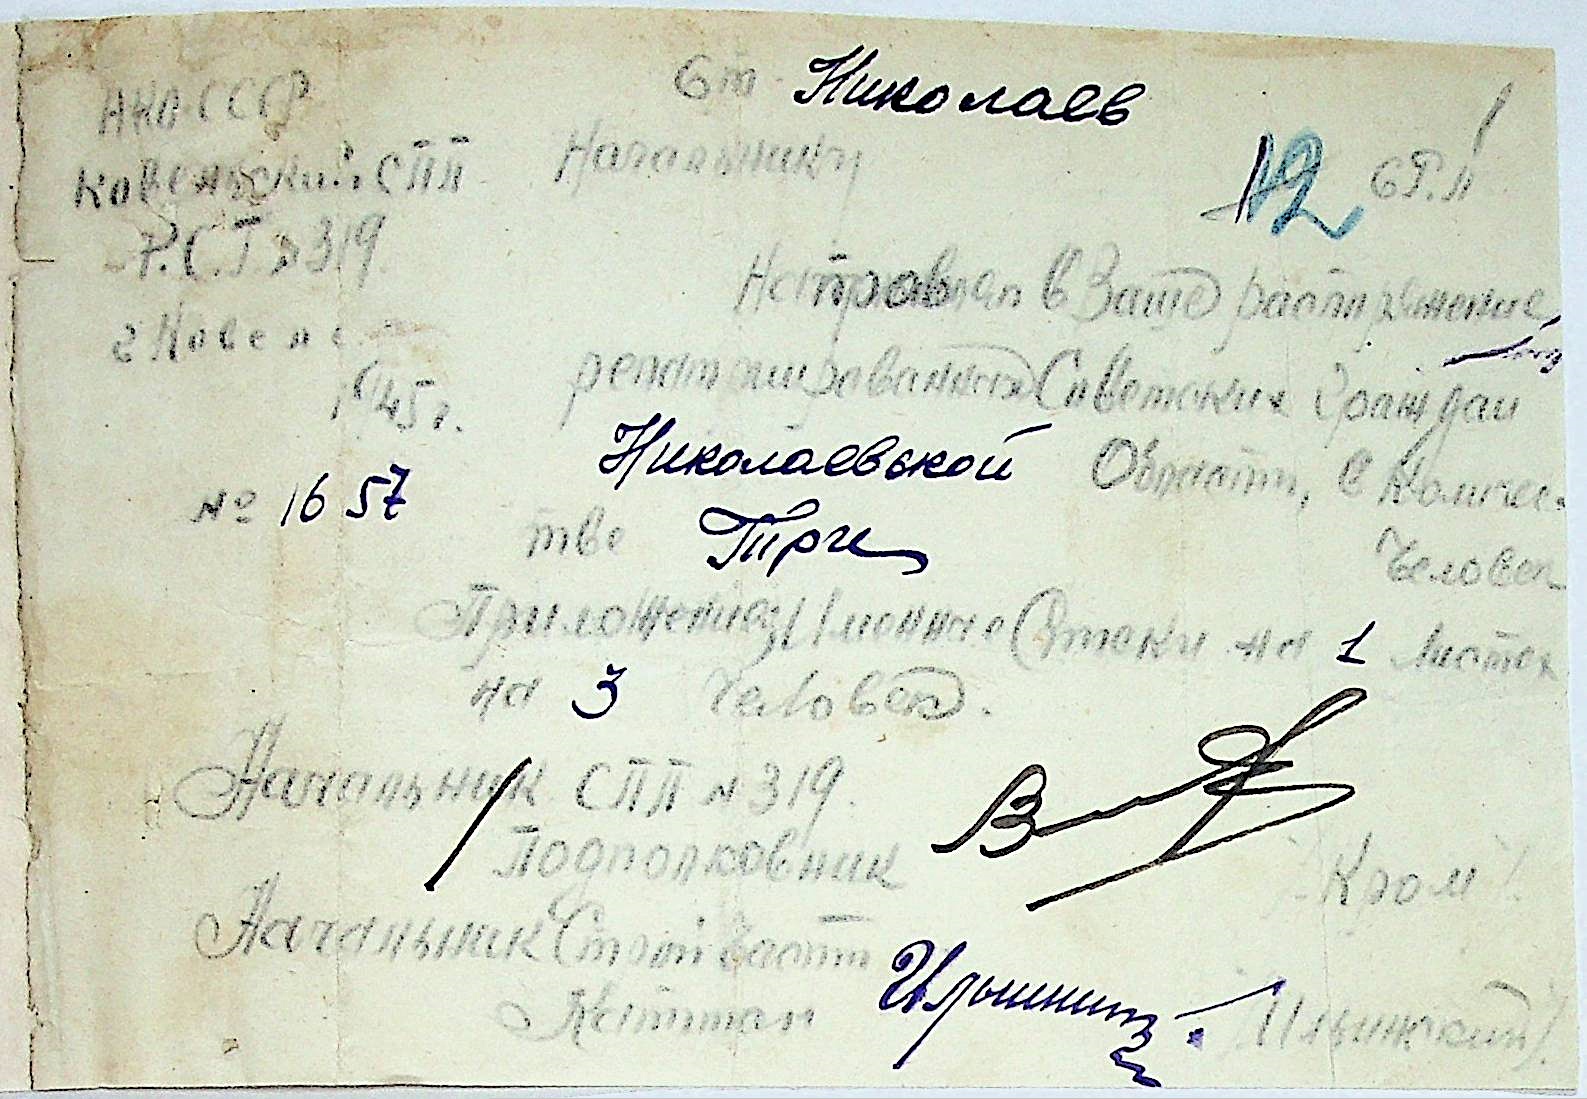 НКО СССР
Ковельский СПП
Р.С.Т. № 319
г Ковель
1945 г.
№ 1657
Ст. Николаев
Начальнику 12 СРП
Направляем в Ваше распоряжение
репатриированных Советских Граждан
Николаевской Области, в количес-
тве Трги Человек
Приложение, Именные Списки на 1 листах
на 3 Человек.
Начальник СПП № 319.
Подполковник
/Кром/
Начальник Строй части
Капитан Ильинский /Ильинский/.